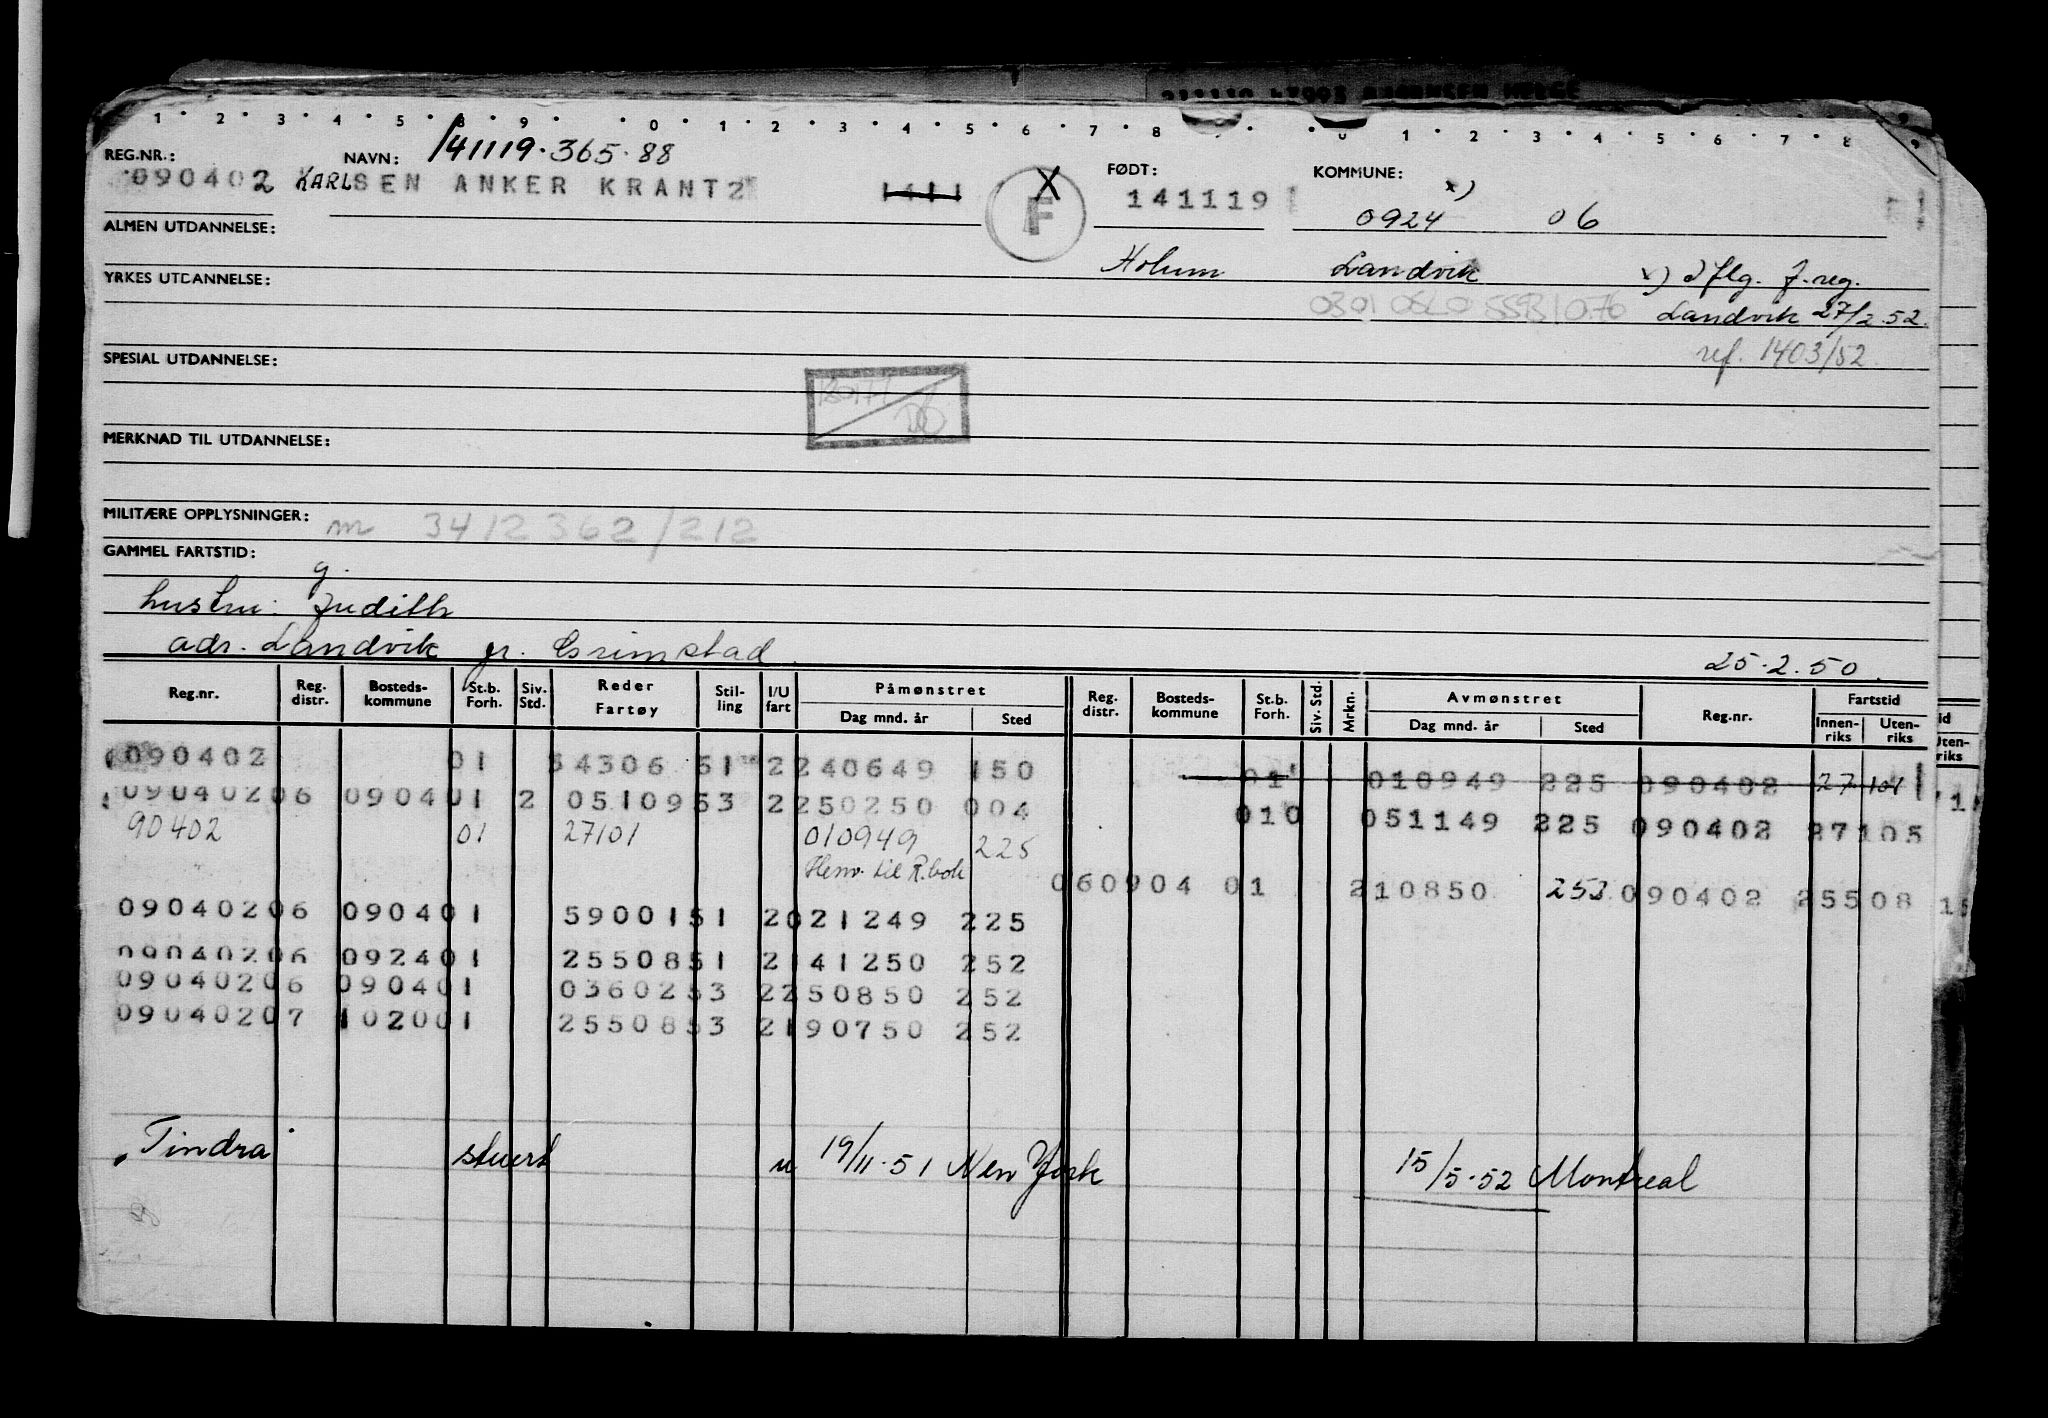 1 2 3 4 5 8 9 0 1 2 3 4 5 6 7 8 0 1 2 3 4 5 6 7 8 9
REG.NR.: NAVN: 141119.365.88 FØDT: KOMMUNE: x)
090402 KARLSEN ANKER KRANTZ 1411 F X 141119 0924 06
ALMEN UTDANNELSE:
Holum Landvik x) Iflg. f.reg.
YRKES UTDANNELSE:
0301 OSLO Landvik 27/2.52.
ref. 1403/52.
SPESIAL UTDANNELSE:
MERKNAD TIL UTDANNELSE:
MILITÆRE OPPLYSNINGER: m 3412362/212
GAMMEL FARTSTID:
g.
hustru: Judith
adr. Landvik pr. Grimstad. 25.2.50.
Reg.nr. Reg. distr. Bosteds- kommune St.b. Forh. Siv. Std. Reder Fartøy Stil- ling I/U fart Påmønstret Dag mnd. år Sted Reg. distr. Bosteds- kommune St.b. Forh. Siv. Std. Mrkn. Avmønstret Dag mnd. år Sted Reg.nr. Fartstid Innen- riks Uten- riks
090402 01 54306 51 2 240649 150 01 010949 225 090402 27 101
090402 06 0904 01 2 05109 53 2 250250 004 010 051149 225 090402 27105
90402 01 27101 010949 225
Henv. til R.bok 06 0904 01 210850 253 090402 25508
090402 06 0904 01 59001 51 2 021249 225
090402 06 0924 01 25508 51 2 141250 252
090402 06 0904 01 03602 53 2 250850 252
090402 07 1020 01 25508 53 2 190750 252
"Tindra" stuert u 19/11.51 New York 15/5.52 Montreal